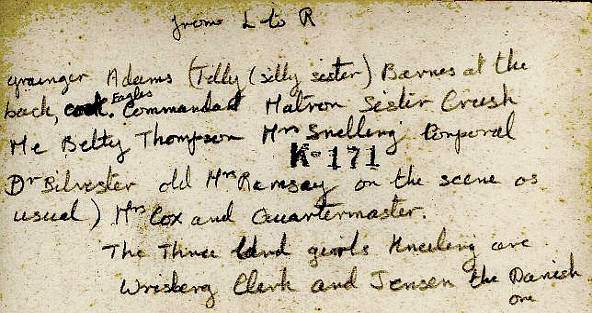 from L to R
Grainger Adams (Tilly (silly sister) Barnes at the
back, cook. Eagles Commandant Matron Sister Crush
Me Betty Thompson Mrs Snelling Corporal
K-171
Dr Silvester old Mrs Ramsay on the scene as
usual) Mrs Cox and Quartermaster.
The Three land girls Kneeling are
Wrisberg Clerk and Jensen the Danish
one